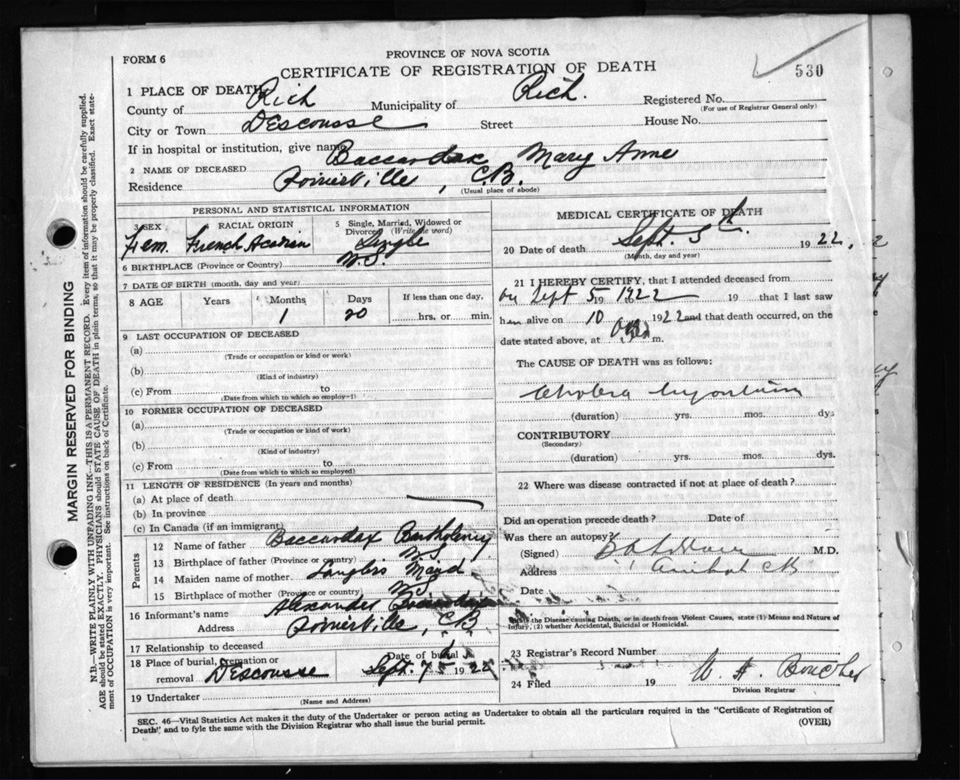 FORM 6
PROVINCE OF NOVA SCOTIA
CERTIFICATE OF REGISTRATION OF DEATH
530
1 PLACE OF DEATH
County of Rich Municipality of Rich. Registered No.
(For use of Registrar General only)
City or Town DEscousse Street House No.
If in hospital or institution, give name
2 NAME OF DECEASED Baccardax Mary Anne
Residence Poirierville, C.B.
(Usual place of abode)
PERSONAL AND STATISTICAL INFORMATION
3 SEX RACIAL ORIGIN 5 Single, Married, Widowed or Divorced (Write the word)
Fem. French Acadian Single
6 BIRTHPLACE (Province or Country) N.S.
7 DATE OF BIRTH (month, day and year)
8 AGE Years Months Days If less than one day,
1 20 hrs. or min.
9 LAST OCCUPATION OF DECEASED
(a)
(Trade or occupation or kind or work)
(b)
(Kind of industry)
(c) From to
(Date from which to which so employ
10 FORMER OCCUPATION OF DECEASED
(a)
(Trade or occupation or kind of work)
(b)
(Kind of industry)
(c) From to
(Date from which to which so employed)
11 LENGTH OF RESIDENCE (In years and months)
(a) At place of death
(b) In province
(c) In Canada (if an immigrant)
Parents
12 Name of father Baccardax Bartholemy
13 Birthplace of father (Province or country) N.S.
14 Maiden name of mother Langlois Maud
15 Birthplace of mother (Province or country) N.S.
16 Informant's name Alexander
Address Poirierville, C.B
17 Relationship to deceased
18 Place of burial, cremation or removal DEscousse Date of burial Sept. 7 1922
19 Undertaker
(Name and Address)
MEDICAL CERTIFICATE OF DEATH
20 Date of death Sept. 5th. 1922,
(Month, day and year)
21 I HEREBY CERTIFY, that I attended deceased from
on Sept 5 19 1922 19 that I last saw
h alive on 10 1922 and that death occurred, on the
date stated above, at m.
The CAUSE OF DEATH was as follows:
Cholera
(duration) yrs. mos. dys
CONTRIBUTORY
(Secondary)
(duration) yrs. mos. dys.
22 Where was disease contracted if not at place of death?
Did an operation precede death? Date of
Was there an autopsy?
(Signed) M.D.
Address Arichat CB
Date
the Disease causing Death, or in death from Violent Causes, state (1) Means and Nature of
Injury, (2) whether Accidental, Suicidal or Homicidal.
23 Registrar's Record Number
24 Filed 19 Boucher
Division Registrar
SEC. 46—Vital Statistics Act makes it the duty of the Undertaker or person acting as Undertaker to obtain all the particulars required in the "Certificate of Registration of
Death" and to fyle the same with the Division Registrar who shall issue the burial permit. (OVER)
MARGIN RESERVED FOR BINDING
N.B.—WRITE PLAINLY WITH UNFADING INK—THIS IS A PERMANENT RECORD. Every item of information should be carefully supplied.
AGE should be stated EXACTLY. PHYSICIANS should STATE CAUSE OF DEATH in plain terms, so that it may be properly classified. Exact state-
ment of OCCUPATION is very important. See instructions on back of Certificate.